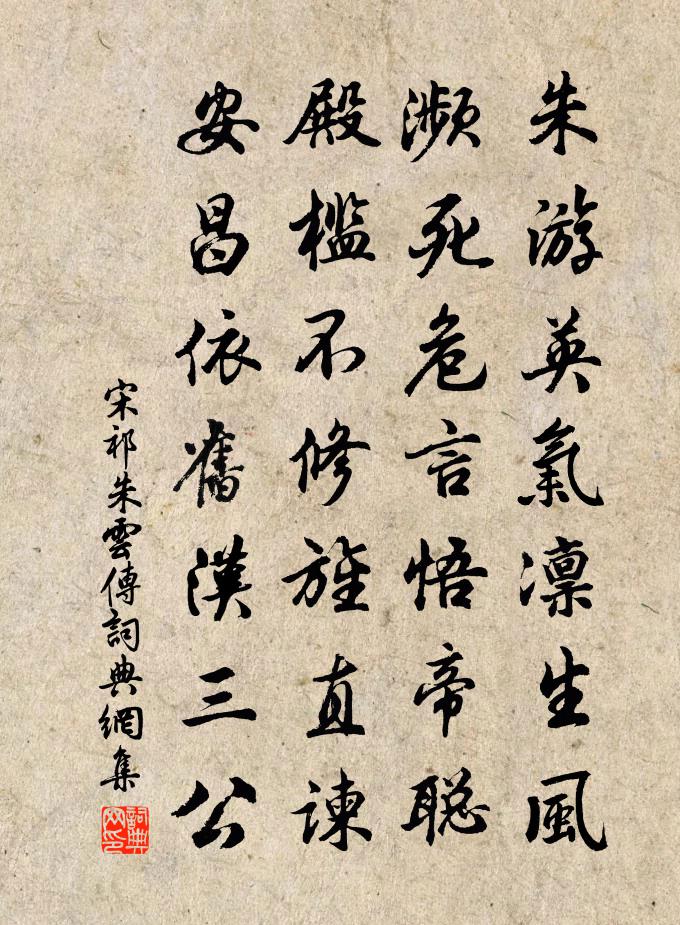 朱游英氣凛生風
瀕死危言悟帝聪
殿檻不修旌直諫
安昌依舊漢三公
宋祁朱雲傳詞典網集
詞典网印